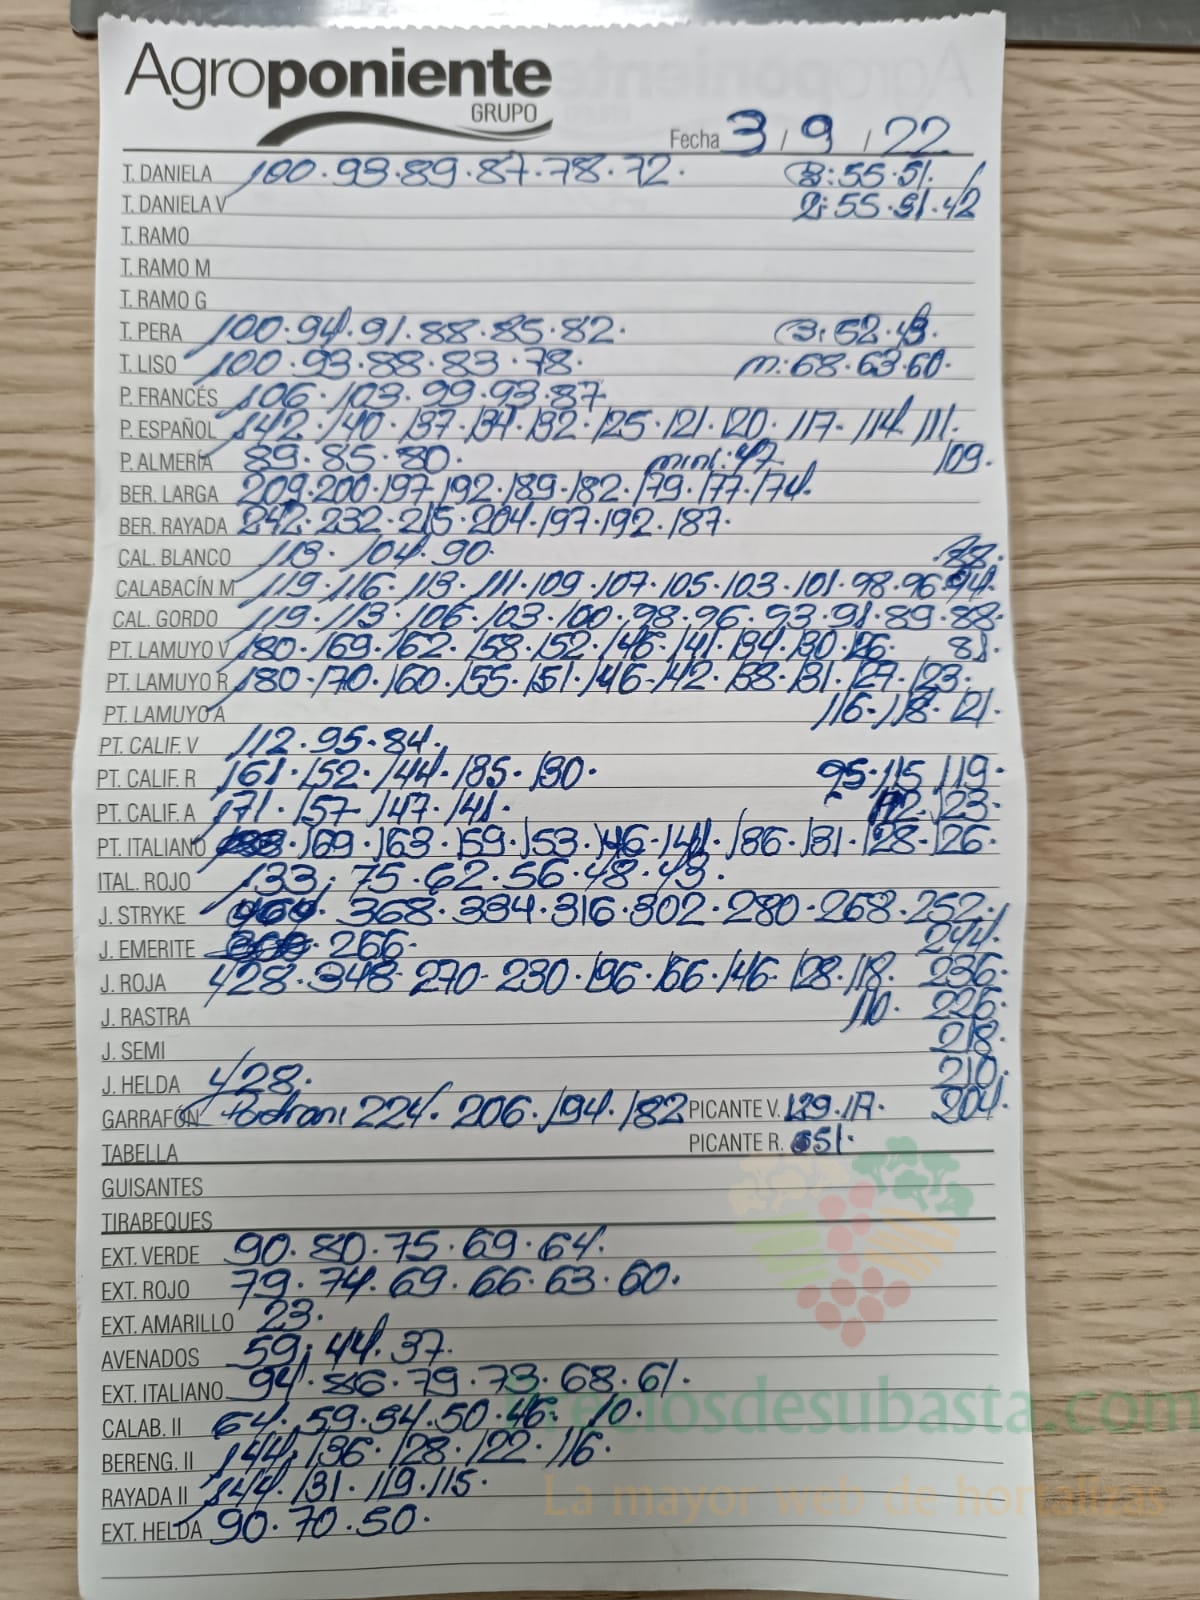 Agroponiente
GRUPO
Fecha 3 / 9 / 22
T. DANIELA 100.93.89.87.78.72. B:55.51.
T. DANIELA V 2:55.51.42
T. RAMO
T. RAMO M
T. RAMO G
T. PERA 100.94.91.88.85.82. B:52.43.
T. LISO 100.93.88.83.78. M:68.63.60.
P. FRANCÉS 106.103.99.93.87
P. ESPAÑOL 142.140.137.134.132.125.121.120.117.114.111.
P. ALMERÍA 89.85.80. mini:47 109.
BER. LARGA 209.200.197.192.189.182.179.177.174.
BER. RAYADA 242.232.215.204.197.192.187.
CAL. BLANCO 113.104.90.
CALABACÍN M 119.116.113.111.109.107.105.103.101.98.96.94.
CAL. GORDO 119.113.106.103.100.98.96.93.91.89.88.
PT. LAMUYO V 180.169.162.158.152.146.141.134.130.126. 81.
PT. LAMUYO R 180.170.160.155.151.146.142.138.131.127.123.
PT. LAMUYO A 116.118.121.
PT. CALIF. V 112.95.84.
PT. CALIF. R 161.152.144.135.130. 95.115 119.
PT. CALIF. A 171.157.147.141. 112.123.
PT. ITALIANO 169.163.159.153.146.141.136.131.128.126.
ITAL. ROJO 133.75.62.56.48.43.
J. STRYKE 368.334.316.302.280.268.252.
J. EMERITE 266. 244.
J. ROJA 428.348.270.230.196.166.146.128.118. 236.
J. RASTRA 110. 226.
J. SEMI 218.
J. HELDA 428. 210.
GARRAFÓN 224.206.194.182 PICANTE V. 129.117. 204.
TABELLA PICANTE R. 551.
GUISANTES
TIRABEQUES
EXT. VERDE 90.80.75.69.64.
EXT. ROJO 79.74.69.66.63.60.
EXT. AMARILLO 23.
AVENADOS 59.44.37.
EXT. ITALIANO 94.86.79.73.68.61.
CALAB. II 64.59.54.50.46. 10.
BERENG. II 144.136.128.122.116.
RAYADA II 144.131.119.115.
EXT. HELDA 90.70.50.
preciosdesubasta.com
La mayor web de hortalizas